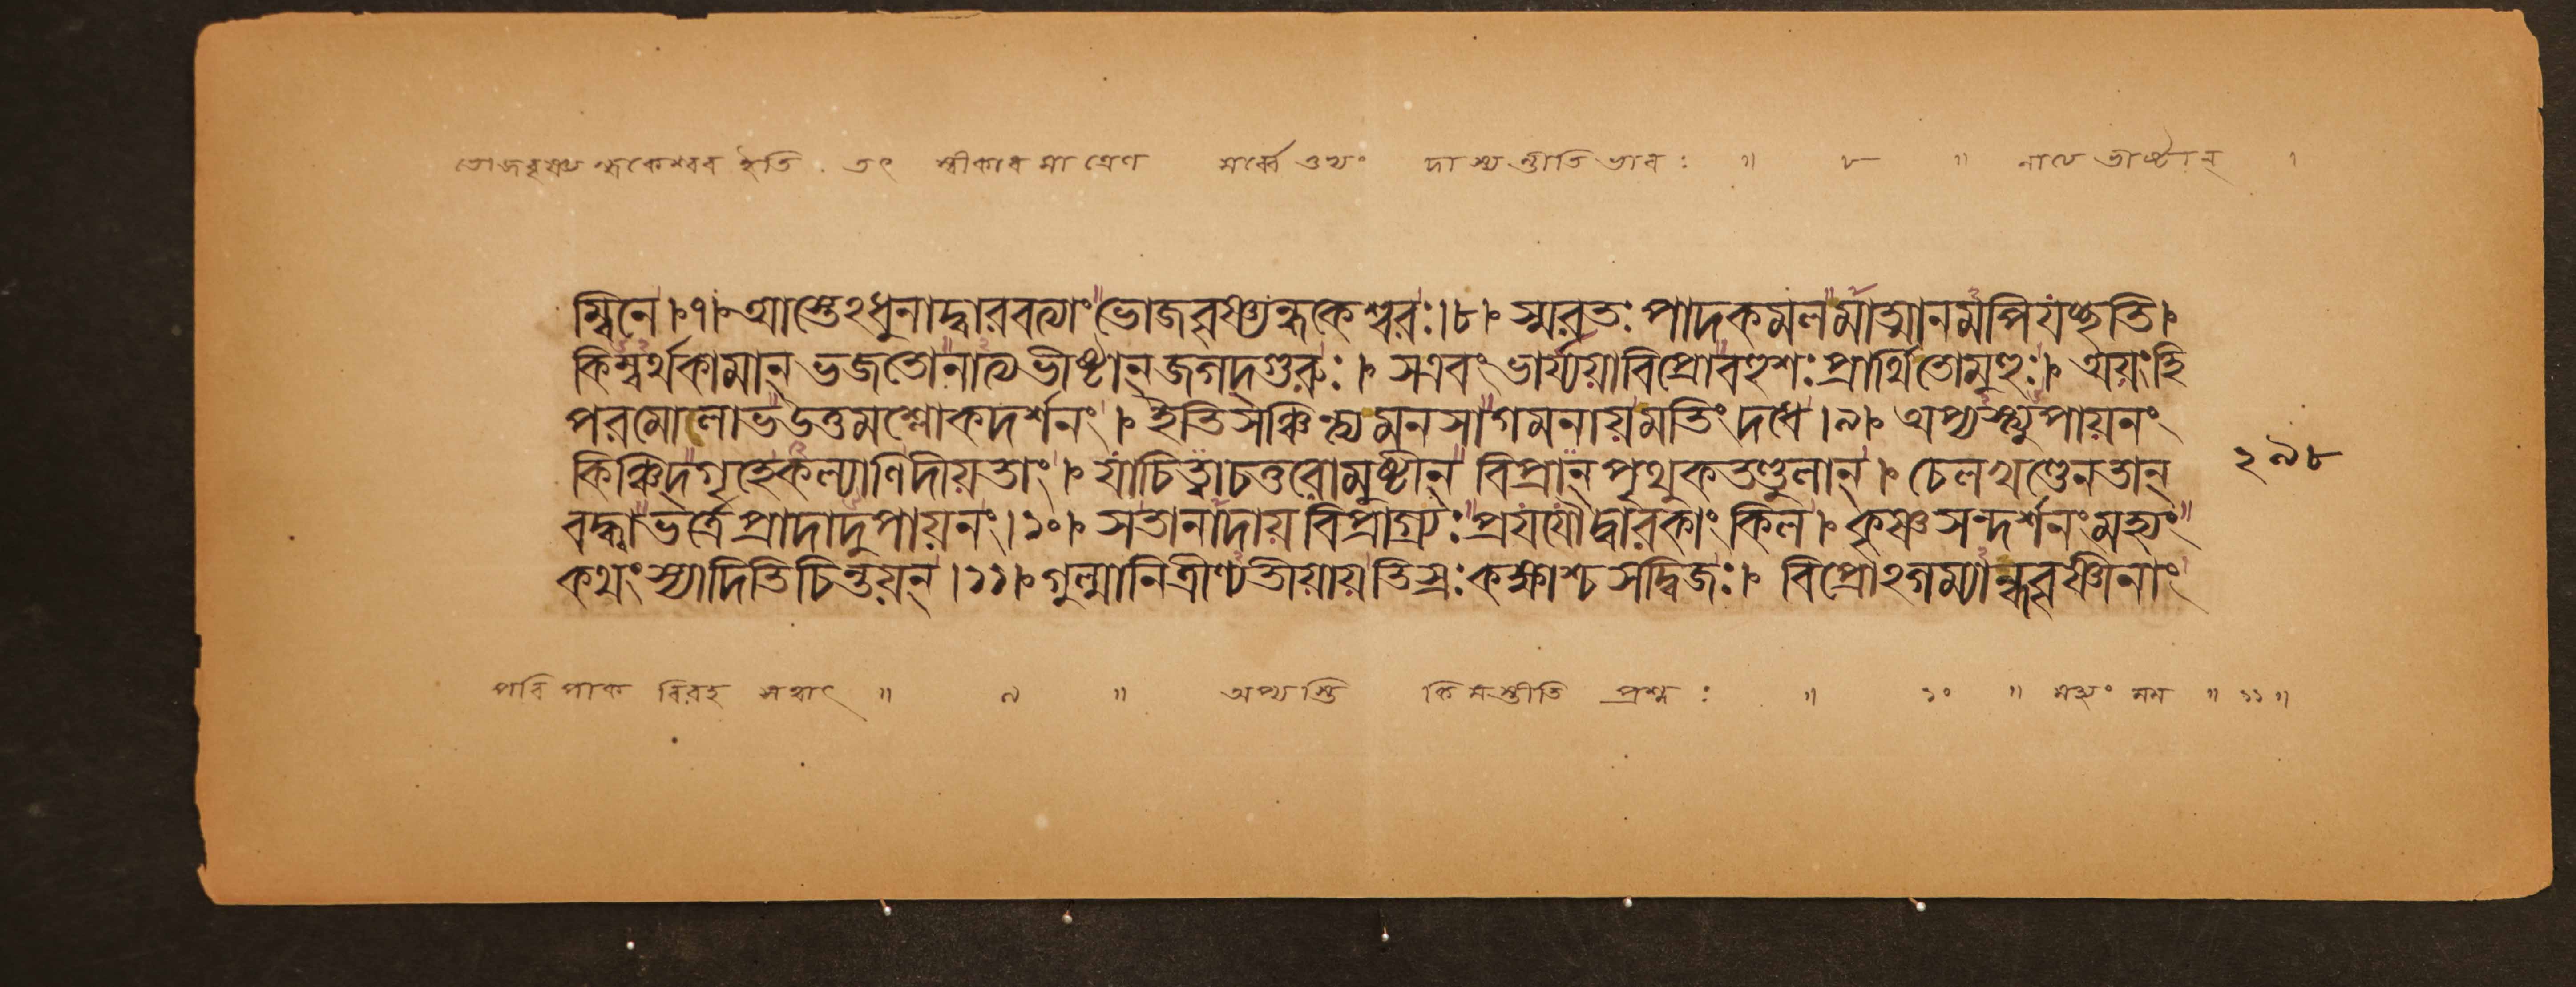 ভোজবৃষ্ণ্যন্ধকেশ্বর ইতি . তৎ স্বীকার মাত্রেণ সর্ব্বেঽথং দাস্যন্তীতি ভাবঃ ॥ ৮ ॥ নাত্য ভীষ্টান্ ।
ম্বিনে । ৭ । আস্তেঽধুনাদ্বারবত্যাং ভোজবৃষ্ণ্যন্ধকেশ্বরঃ । ৮ । স্মরতঃ পাদকমলমাত্মানমপি যচ্ছতি ।
কিম্বর্থকামান্ ভজতোনাত্যভীষ্টান্ জগদ্গুরুঃ । সএবং ভার্য্যয়াবিপ্রোবহুশঃ প্রার্থিতোমুহুঃ । অয়ং হি
পরমোলাভউত্তমশ্লোকদর্শনং । ইতি সঞ্চিন্ত্য মনসাগমনায়মতিং দধে । ৯ । অপ্যস্ত্যুপায়নং
কিঞ্চিদ্গৃহেকল্যাণিদীয়তাং । যাচিত্বাচতুরোমুষ্টীন্ বিপ্রান্ পৃথুকতণ্ডুলান্ । চেলখণ্ডেনতান্
২৯৮
বদ্ধ্বাভর্ত্রেপ্রাদাদুপায়নং । ১০ । সতানাদায় বিপ্রাগ্র্যঃ প্রযযৌদ্বারকাং কিল । কৃষ্ণসন্দর্শনং মহ্যং
কথং স্যাদিতি চিন্তয়ন্ । ১১ । গুল্মানিত্রীণ্যতীয়ায় তিস্রঃ কক্ষাশ্চ সদ্বিজঃ । বিপ্রোঽগম্যান্ধবৃষ্ণীনাং
পরিপাক বিরহ সথাৎ ॥ ৯ ॥ অপ্যস্তি কিমস্তীতি প্রশ্নঃ ॥ ১০ ॥ মহ্যং মম ॥ ১১ ॥